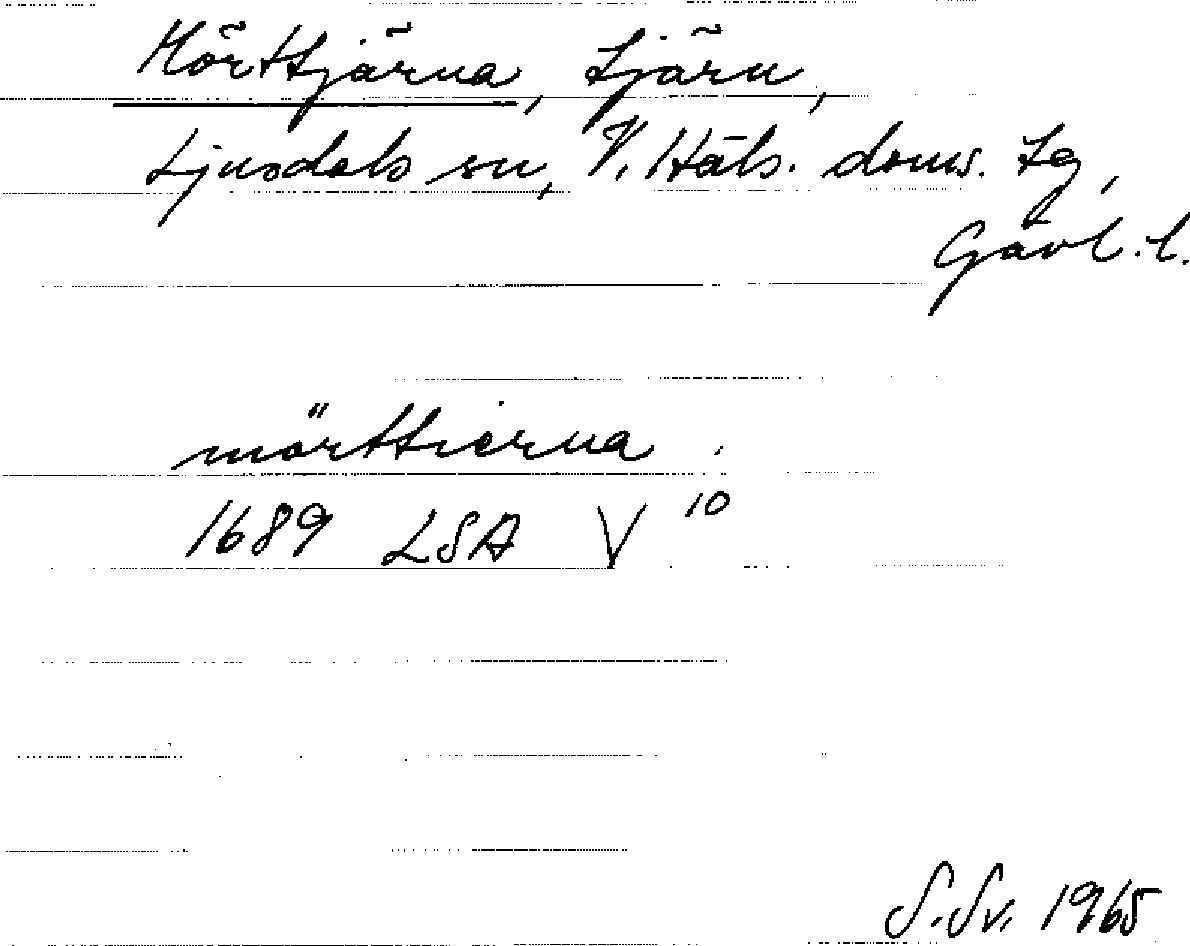 Mörttjärna, tjärn,
Ljusdals sn, V. Häls. doms. tg,
Gävl. l.
mörttierna.
1689 LSA V 10
S. Sv. 1965